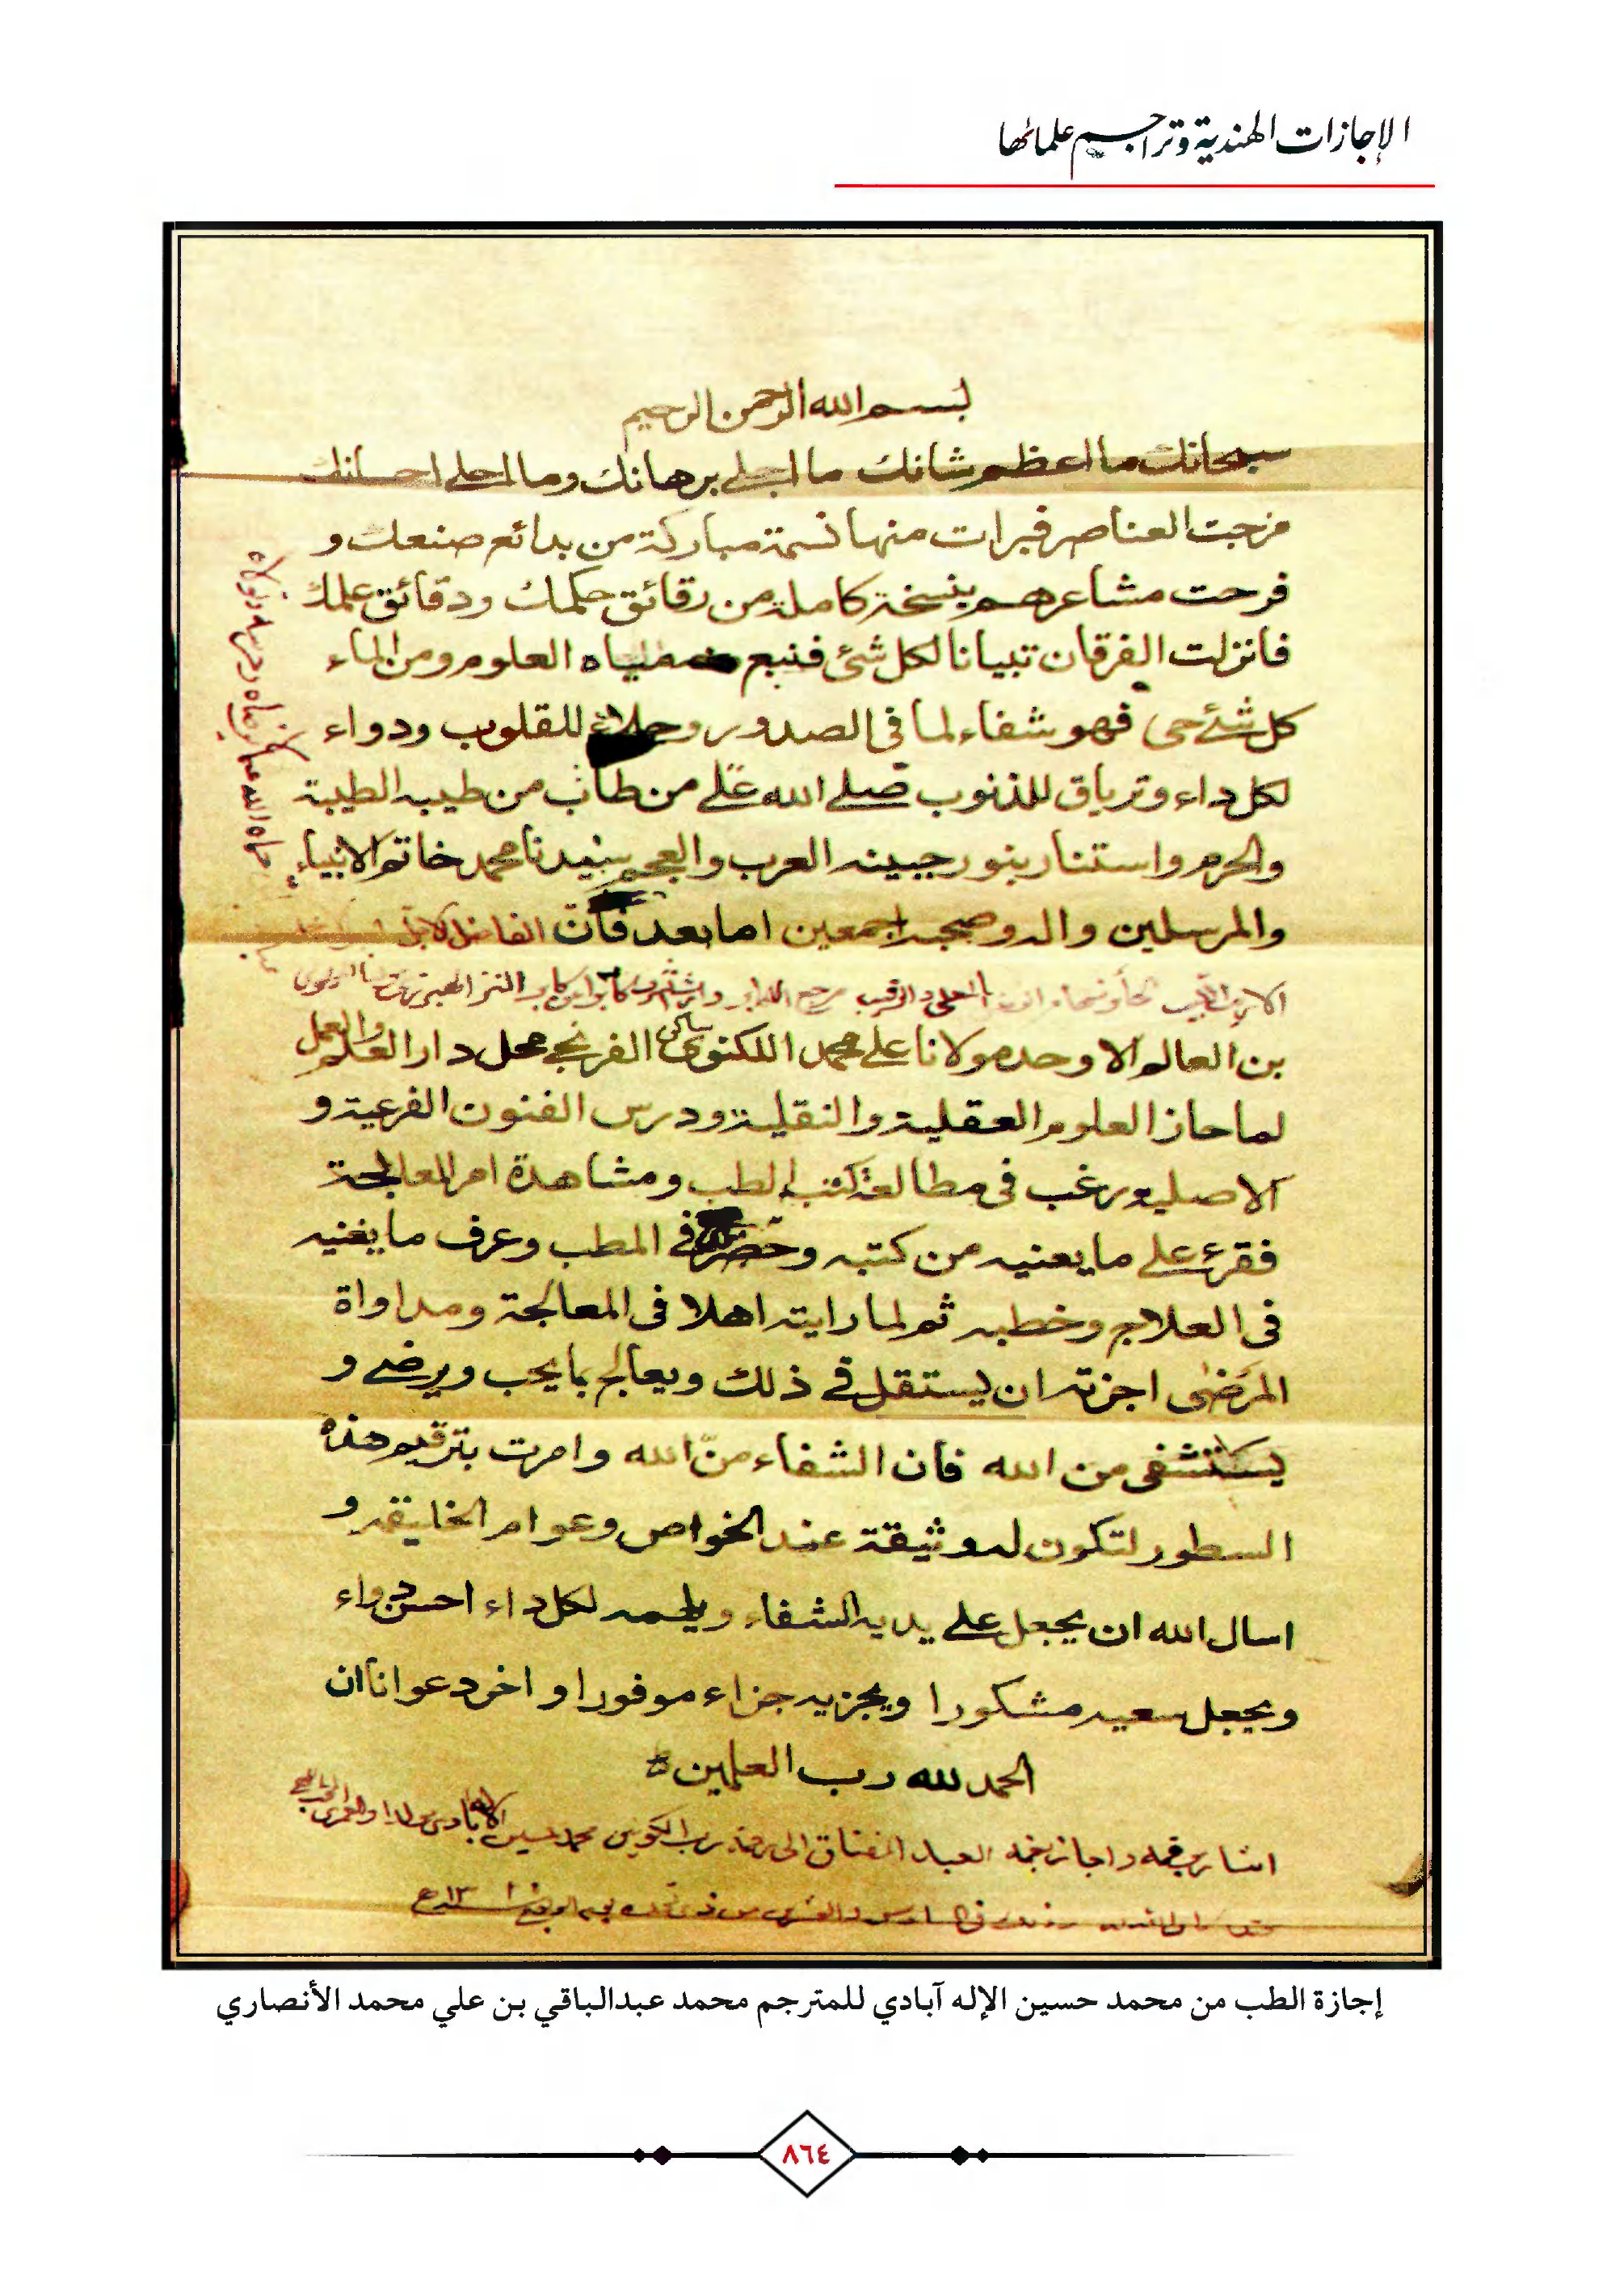 الإجازات الهندية وتراجم علمائها
بسم الله الرحمن الرحيم
سبحانك ما اعظم شانك ما اجلى برهانك وما احلى احسانك
مزجت العناصر فبرات منها نسمة مباركة من بدائع صنعك و
فرحت مشاعرهم بنسخة كاملة من رقائق حكمك ودقائق علمك
فانزلت الفرقان تبيانا لكل شئ فنبع مياه العلوم ومن الماء
كل شئ حى فهو شفاء لما فى الصدور وجلاء للقلوب ودواء
لكل داء وترياق للذنوب صلى الله على من طاب من طيبه الطيبة
والحرم واستنار بنور جبينه العرب والعجم سيدنا محمد خاتم الانبياء
والمرسلين واله وصحبه اجمعين اما بعد فان الفاضل
بن العالم الاوحد مولانا على محمد اللكنوى الفرنجى محل دار العلم والعمل
لما حاز العلوم العقلية والنقلية ودرس الفنون الفرعية و
الاصلية ورغب فى مطالعة كتب الطب ومشاهدة امر المعالجة
فقرئ على ما يعنيه من كتبه وحضر فى المطب وعرف ما يغنيه
فى العلاج وخطبه ثم لما رايته اهلا فى المعالجة ومداواة
المرضى اجزته ان يستقل فى ذلك ويعالج بما يحب ويرضى و
يستشفى من الله فان الشفاء من الله وامرت بترقيم هذه
السطور لتكون له وثيقة عند الخواص وعوام الخليقة و
اسال الله ان يجعل على يديه الشفاء ويلهمه لكل داء احسن دواء
ويجعل سعيه مشكورا ويجزيه جزاء موفورا واخر دعوانا ان
الحمد لله رب العلمين
العبد المفتاق الى رحمة رب الكونين محمد حسين
إجازة الطب من محمد حسين الإله آبادي للمترجم محمد عبدالباقي بن علي محمد الأنصاري
٨٦٤